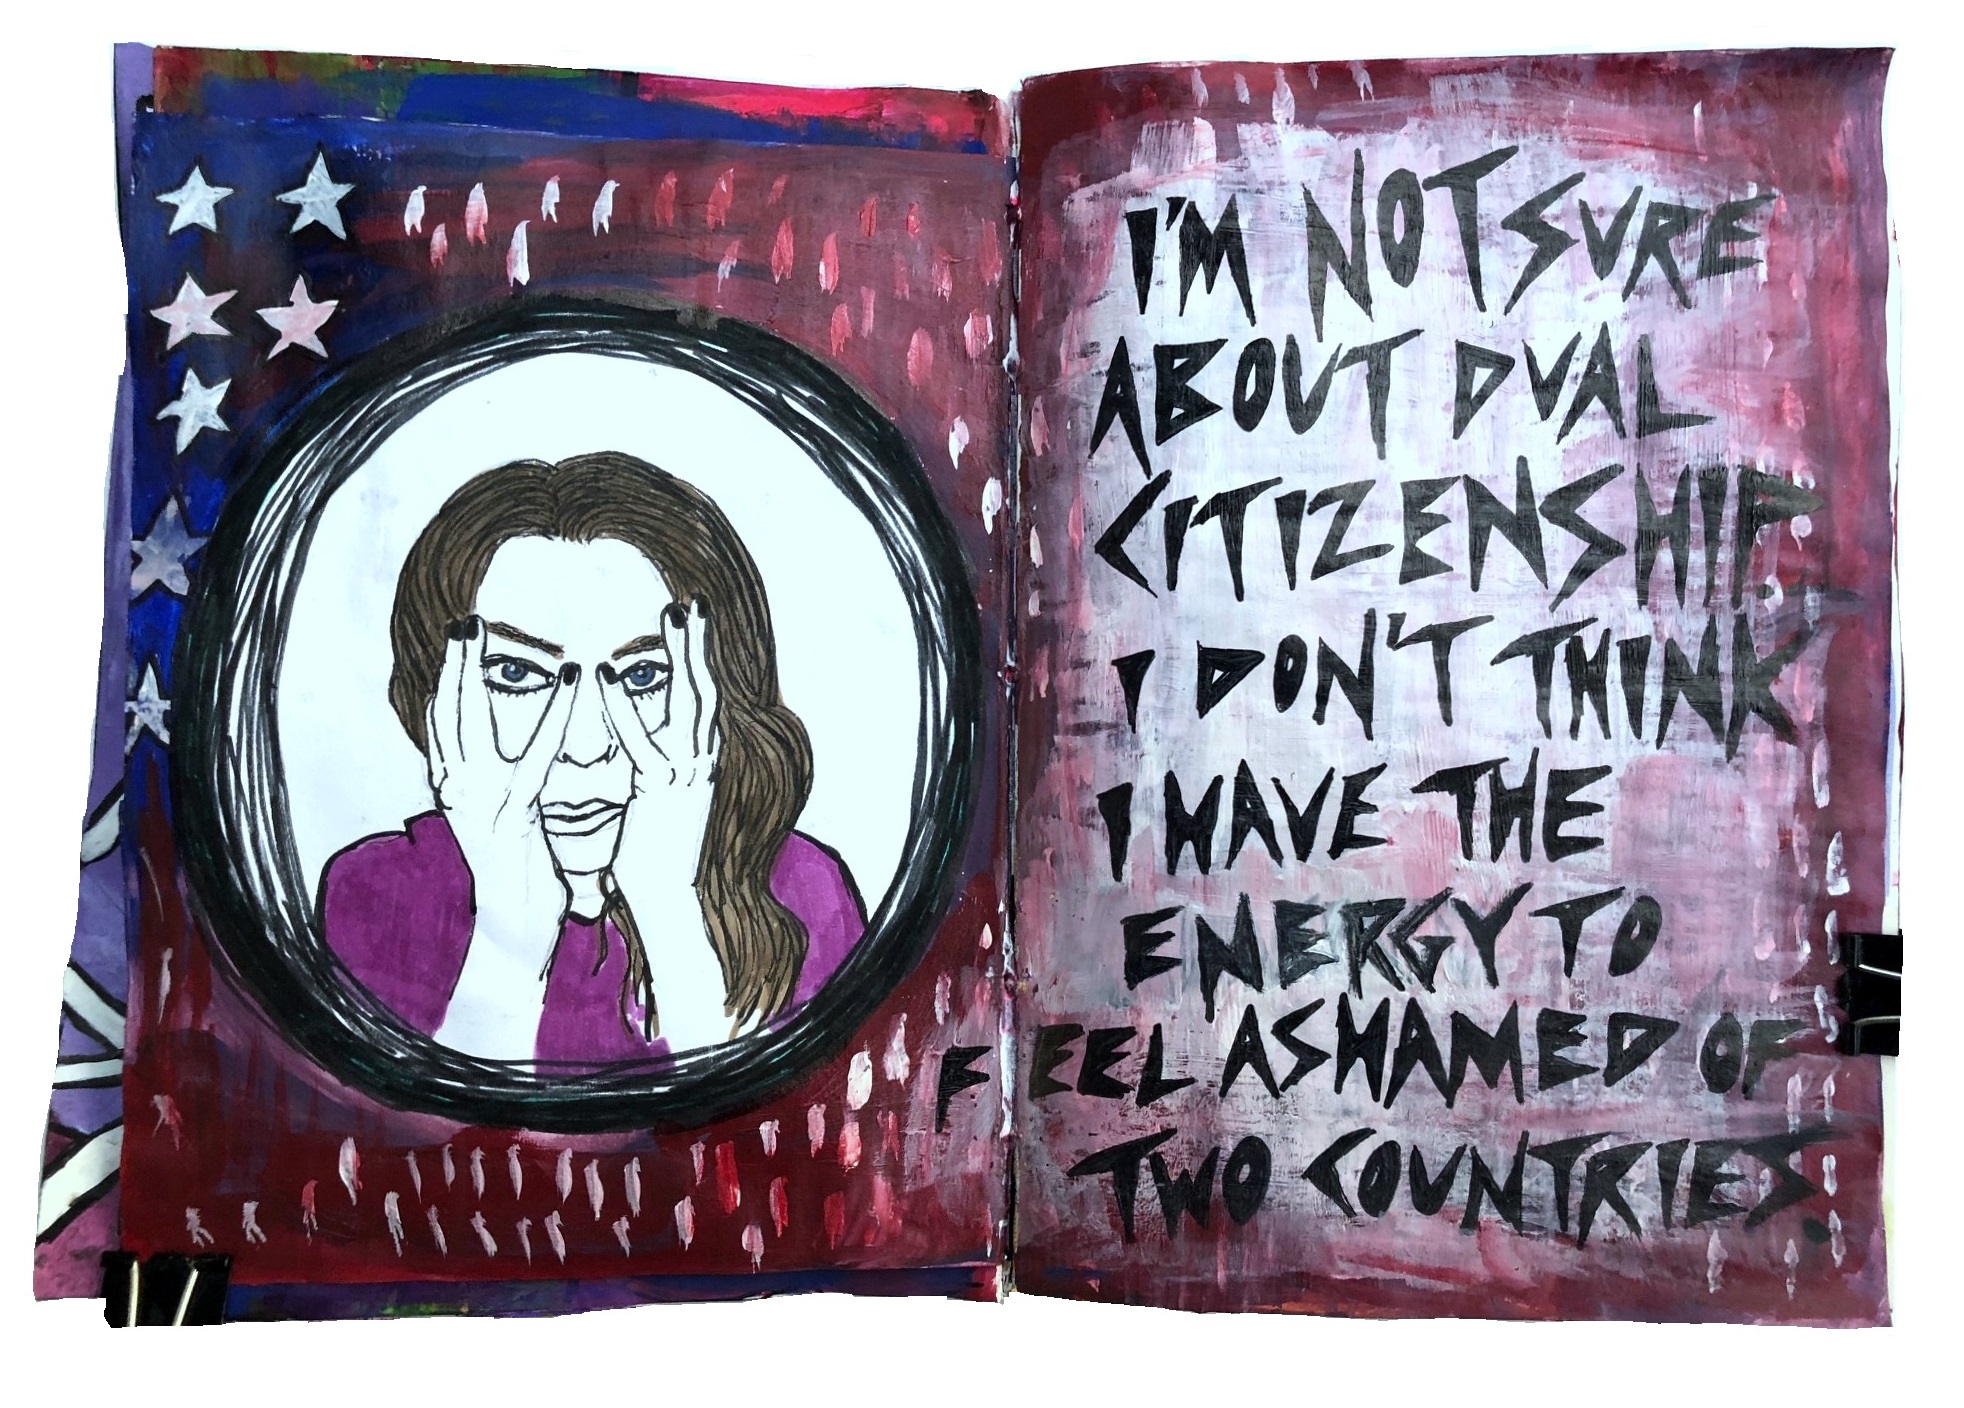 I'M NOT SURE
ABOUT DUAL
CITIZENSHIP.
I DON'T THINK
I HAVE THE
ENERGY TO
FEEL ASHAMED OF
TWO COUNTRIES.